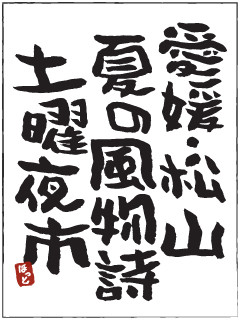 愛媛・松山
夏の風物詩
土曜夜市
ほっと